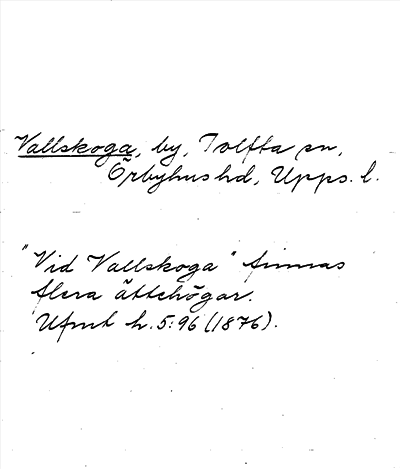 Vallskoga, by, Tolfta sn,
Örbyhus hd, Upps. l.
"Vid Vallskoga" finnas
flera ättehögar.
Ufmt h. 5:96 (1876).